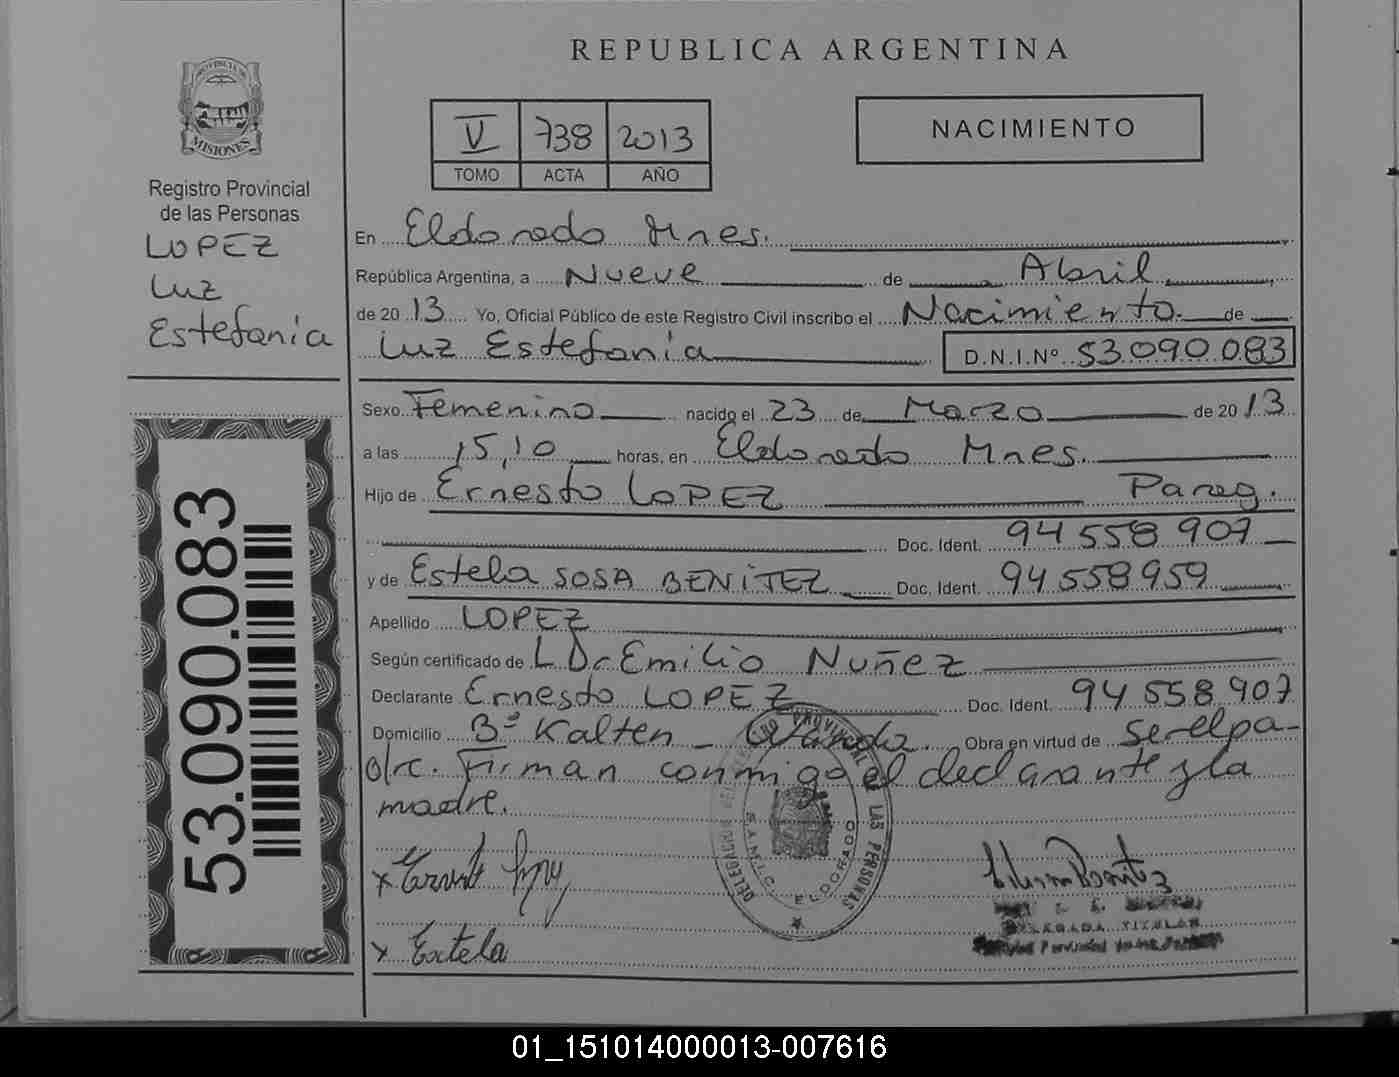 REPUBLICA ARGENTINA
PROVINCIA DE
MISIONES
Registro Provincial
de las Personas
LOPEZ
Luz
Estefanía
53.090.083
V 738 2013
TOMO ACTA AÑO
NACIMIENTO
En Eldorado Mnes.
República Argentina, a Nueve de Abril
de 2013 Yo, Oficial Público de este Registro Civil inscribo el Nacimiento de
Luz Estefanía D.N.I.Nº 53.090.083
Sexo Femenino nacido el 23 de Marzo de 2013
a las 15,10 horas, en Eldorado Mnes.
Hijo de Ernesto LOPEZ Parag.
Doc. Ident. 94 558 907
y de Estela SOSA BENITEZ Doc. Ident. 94 558 959
Apellido LOPEZ
Según certificado de Dr Emilio Nuñez
Declarante Ernesto LOPEZ Doc. Ident. 94 558 907
Domicilio Bº Kalten - Wanda. Obra en virtud de ser el pa-
dre. Firman conmigo el declarante y la
madre.
DELEGACION DEL REGISTRO PROVINCIAL DE LAS PERSONAS
S.A.M.I.C. ELDORADO
x Ernesto Lopez
x Estela
DELEGADA TITULAR
01_151014000013-007616